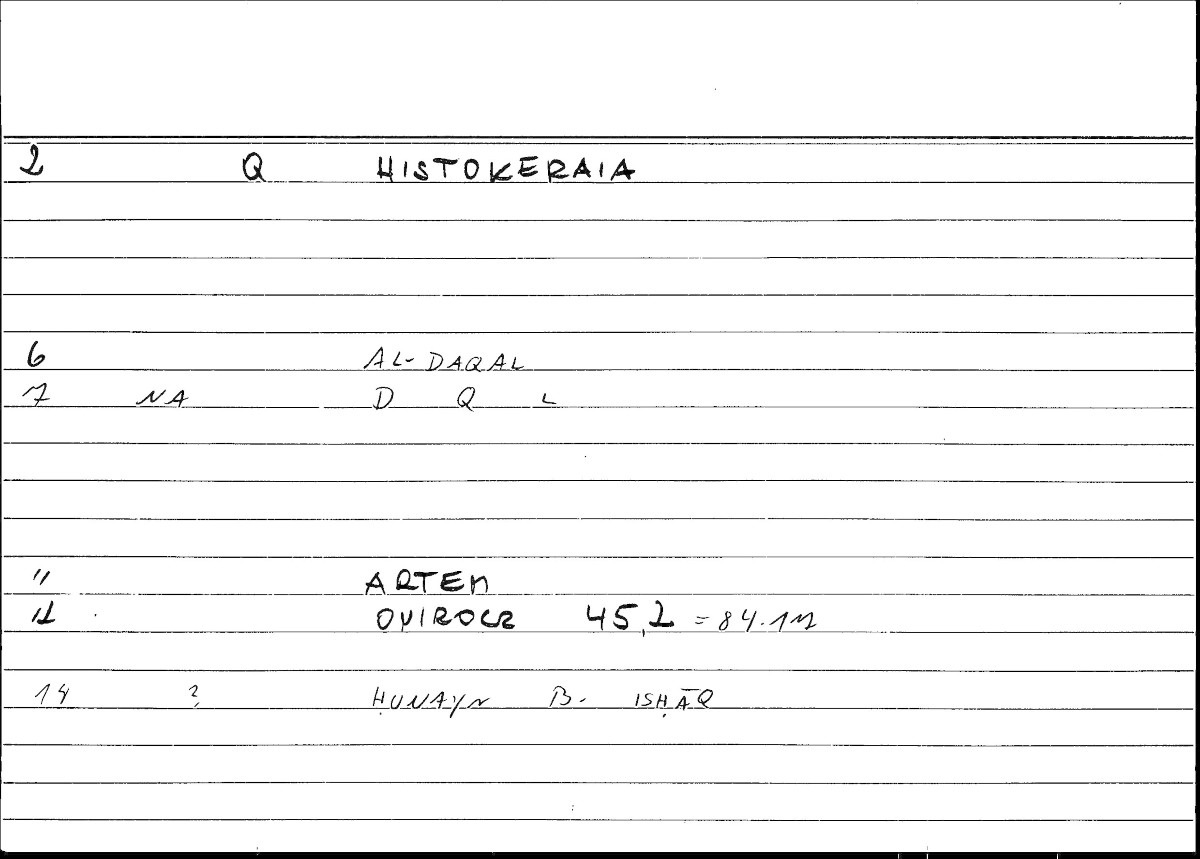 2 Q HISTOKERAIA
6 AL-DAQAL
7 NA D Q L
11 ARTEM
12 OVIROCR 45,2 = 84.1M
14 ? ḤUNAYN B. ISḤĀQ